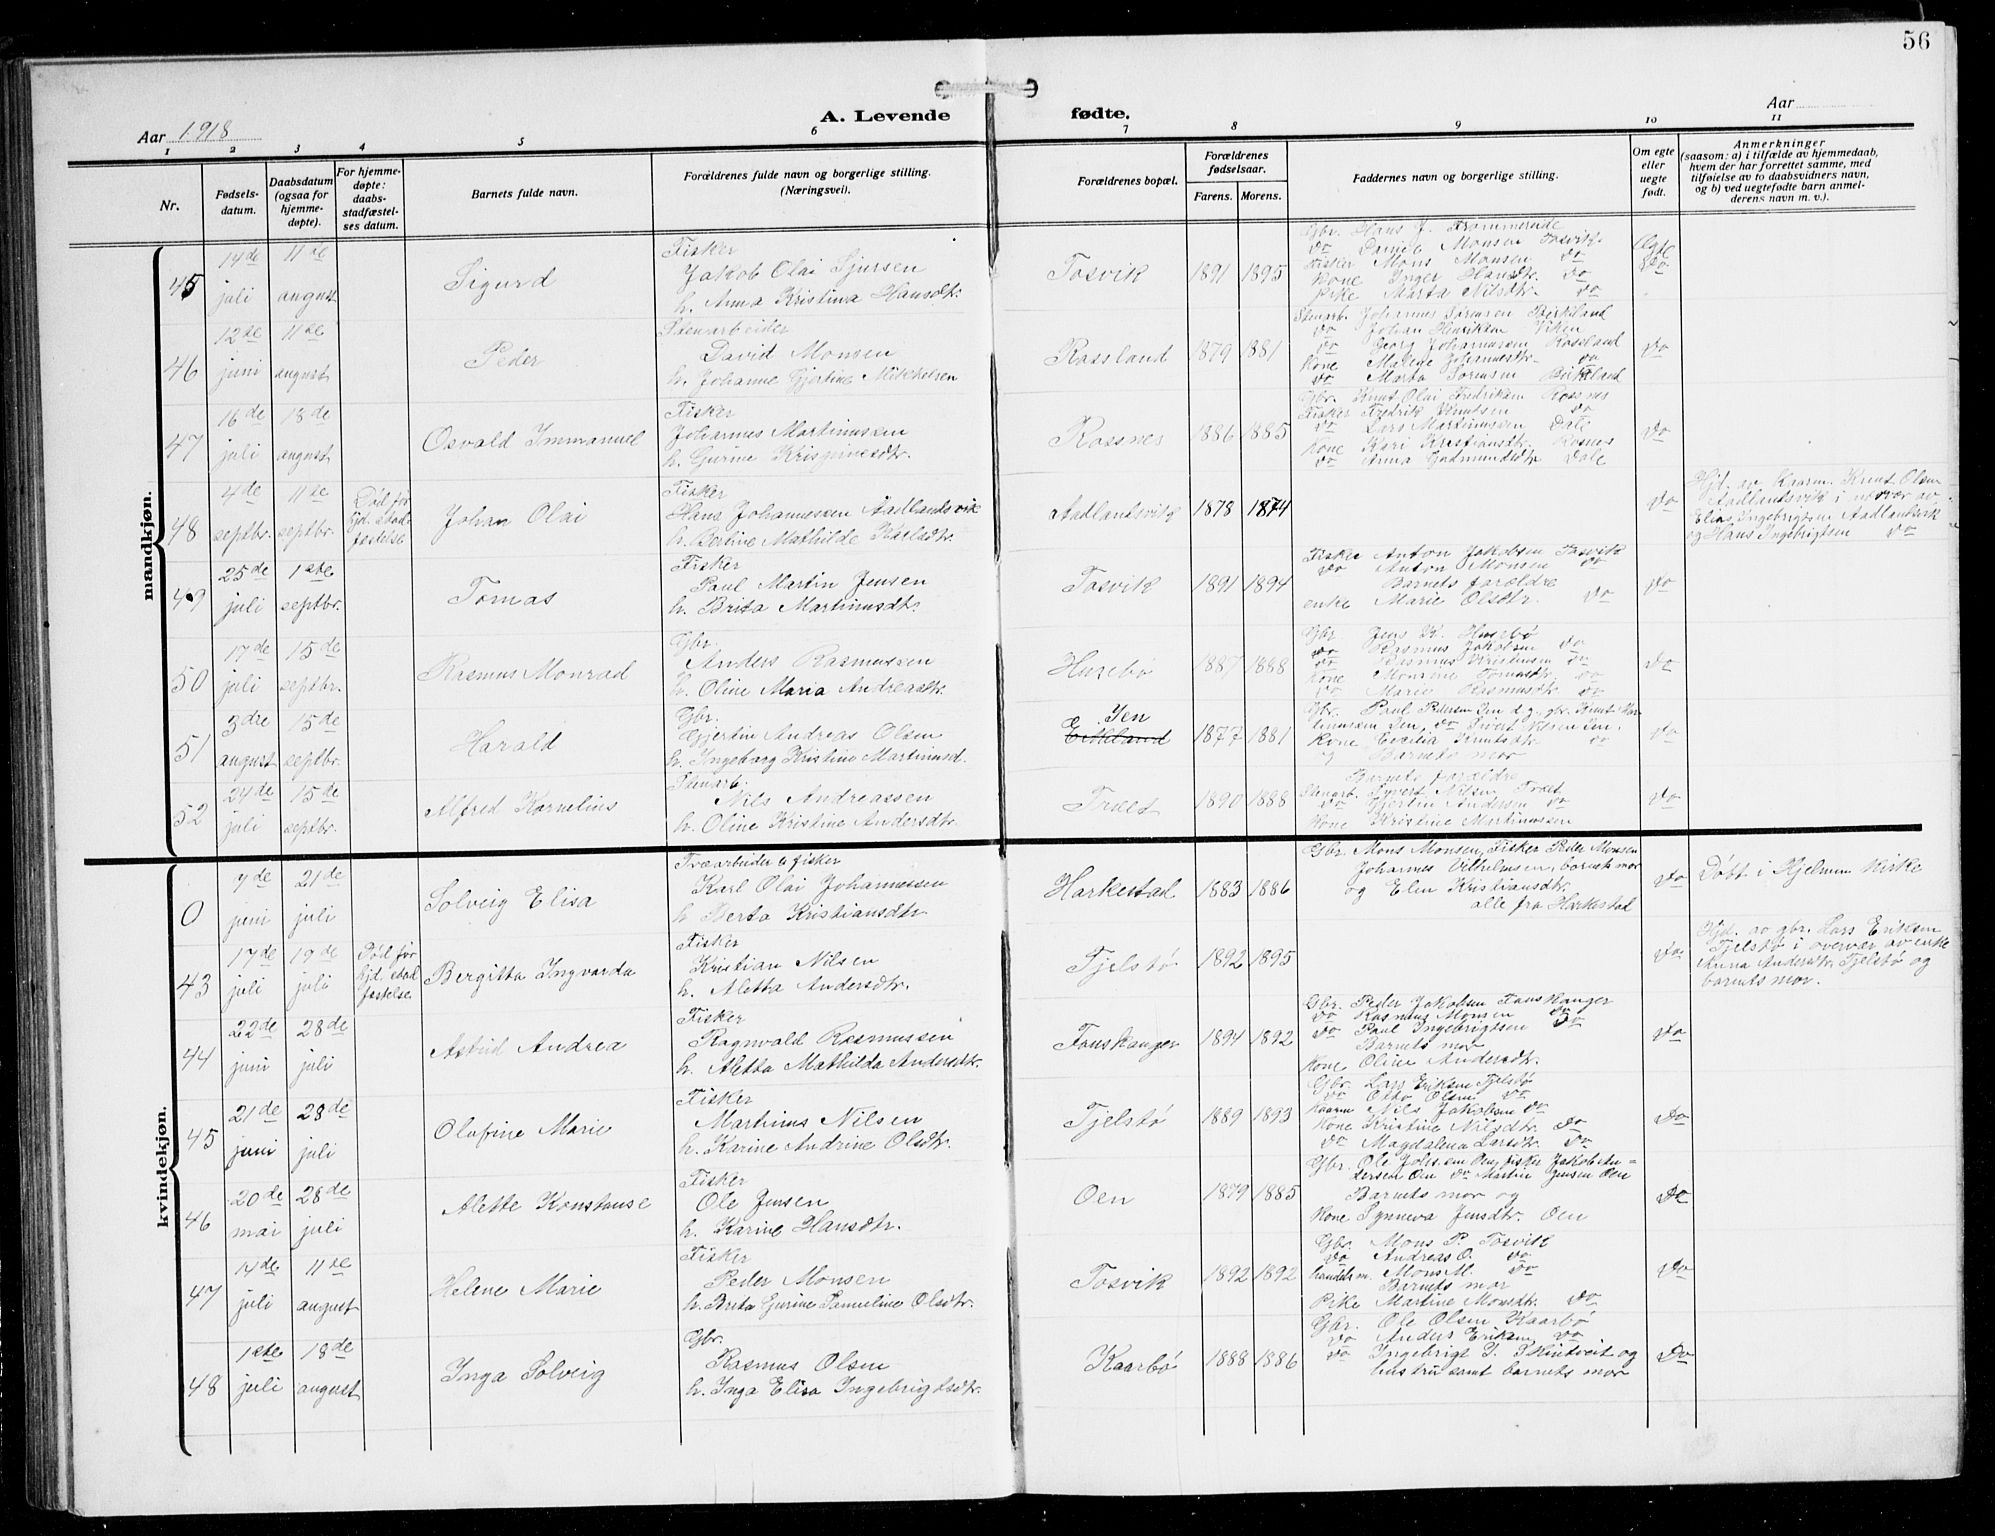 56
Aar 1918
A. Levende fødte.
Aar
1 2 3 4 5 6 7 8 9 10 11
Nr.
Fødsels-
datum.
Daabsdatum
(ogsaa for
hjemme-
døpte).
For hjemme-
døpte:
daabs-
stadfæstel-
ses datum.
Barnets fulde navn.
Forældrenes fulde navn og borgerlige stilling.
(Næringsvei).
Forældrenes bopæl.
Forældrenes
fødselsaar.
Farens. Morens.
Faddernes navn og borgerlige stilling.
Om egte
eller
uegte
født.
Anmerkninger
(saasom: a) i tilfælde av hjemmedaab,
hvem der har forrettet samme, med
tilføielse av to daabsvidners navn,
og b) ved uegtefødte barn anmel-
derens navn m. v.).
mandkjøn.
45
14de
juli
11te
august
Sigurd
Fisker
Jakob Olai Sjursen
h. Anna Kristina Hansdtr.
Tosvik
1891 1895
Gbr. Hans J. Frommereide
do Daniel Monsen Tosvik
Fisker Mons Monsen do
Kone Inger Hansdtr. do
Pike Marta Nilsdtr. do
Ægte
Do
46
12te
juni
11te
august
Peder
Stenarbeider
David Monsen
h. Johanne Gjertine Mikkelsen
Rossland
1879 1881
Stenarb. Johannes Sørensen Birkeland
do Johan Henriksen Viken
do Georg Johannessen Rossland
Kone Malene Johannesdtr. do
do Marta Sørensen Birkeland
Do
47
16de
juli
18de
august
Osvald Immanuel
Fisker
Johannes Martinussen
h. Gurine Krispinusdtr.
Rossnes
1886 1885
Gbr. Knut Olai Fredriksen Rossnes
Fisker Fredrik Knutsen do
do Lars Martinussen Dale
Kone Kari Kristiansdtr. Rosnes
do Anna Gudmundsdtr Dale
Do
48
4de
septbr.
11te
septbr.
Død før
hjd. stad
fæstelse
Johan Olai
Fisker
Hans Johannessen Aadlandsvik
h. Bertine Mathilde Karlsdtr.
Aadlandsvik
1878 1874
Do
Hjd. av Kaarm. Knut Olsen
Aadlandsvik i nærvær av
Elias Ingebrigtsen Aadlandsvik
og Hans Ingebrigtsen do
49
25de
juli
1ste
septbr.
Tomas
Fisker
Paul Martin Jensen
h. Brita Martinusdtr.
Tosvik
1891 1894
Fisker Anton Jakobsen Tosvik
do Anton Monsen do
Barnets forældre
enke Marie Olsdtr. do
Do
50
17de
juli
15de
septbr.
Rasmus Monrad
Gbr.
Anders Rasmussen
h. Oline Maria Andreasdtr.
Husebø
1887 1888
Gbr. Jens K. Husebø
do Rasmus Jakobsen do
do Rasmus Kristensen do
Kone Monrine Tomasdtr. do
do Marie Rasmusdtr. do
Do
51
3dre
august
15de
septbr.
Harald
Gbr.
Gjertin Andreas Olsen
h. Ingeborg Kristine Martinusd.
Øen
Eikeland
1877 1881
Gbr. Paul Pedersen Øen d.g., gbr. Knut Mar-
tinussen Øen, do Sivert Nilsen Øen.
Kone Cecilia Knutsdtr. do
og Barnets mor
Do
52
24de
juli
15de
septbr.
Alfred Kornelius
Stenarb.
Nils Andreassen
h. Oline Kristine Andersdtr.
Træet
1890 1888
Barnets forældre
Stenarb. Syvert Nilsen Træet
do Gjertin Andersen do
Kone Kristine Martinussen
Do
kvindekjøn.
0
7de
juni
21de
juli
Solveig Elisa
Træarbeider & fisker
Karl Olai Johannessen
h. Berta Kristiansdtr
Harkestad
1883 1886
Gbr. Mons Monsen, Fisker Peder Monsen
Johannes Vilhelmsen, barnets mor
og Elen Kristiansdtr.
alle fra Harkestad
Do
Døbt i Hjelmen Kirke
43
17de
juli
19de
juli
Død før
hjd. stad
fæstelse
Bergitta Ingvarda
Fisker
Kristian Nilsen
h. Aletta Andersdtr.
Tjelstø
1892 1895
Do.
Hjd. av gbr. Lars Eriksen
Tjelstø i overvær av enke
Anna Andersdtr. Tjelstø og
barnets mor.
44
22de
juni
28de
juli
Astrid Andrea
Fisker
Ragnvald Rasmussen
h. Aletta Mathilda Andersdtr.
Fonskanger
1894 1892
Gbr. Peder Jakobsen Fonskanger
do Rasmus Monsen do
do Paul Ingebrigtsen do
Barnets mor
Kone Oline Andersdtr.
Do
45
21de
juni
28de
juli
Olafine Marie
Fisker
Martinus Nilsen
h. Karine Andrine Olsdtr.
Tjelstø
1889 1893
Gbr. Lars Eriksen Tjelstø
do Otto Olsen do
Kaarm Nils Jakobsen do
Kone Kristine Nilsdtr. do
do Magdalena Larsdtr. do
Do
46
20de
mai
28de
juli
Alette Konstanse
Fisker
Ole Jensen
h. Karine Hansdtr.
Oen
1879 1885
Gbr. Ole Johs.sen Oen, fisker Jakob An-
dersen Oen do Martin Jensen Oen
Barnets mor og
Kone Synneva Jensdtr. Oen
Do
47
14de
juli
11te
august
Helene Marie
Fisker
Peder Monsen
h. Brita Gurine Samueline Olsdtr.
Tosvik
1892 1892
Gbr. Mons P. Tosvik
do Andreas O. do
handelsm. Mons M. do
Barnets mor
Pike Martine Monsdtr. do
Do
48
1ste
juli
18de
august
Inga Solveig
Gbr.
Rasmus Olsen
h. Inga Elisa Ingebrigtsdtr.
Kaarbø
1888 1886
Gbr. Ole Olsen Kaarbø
do Anders Eriksen do
do Ingebrigt J. Skintveit og
hustru samt barnets mor
Do